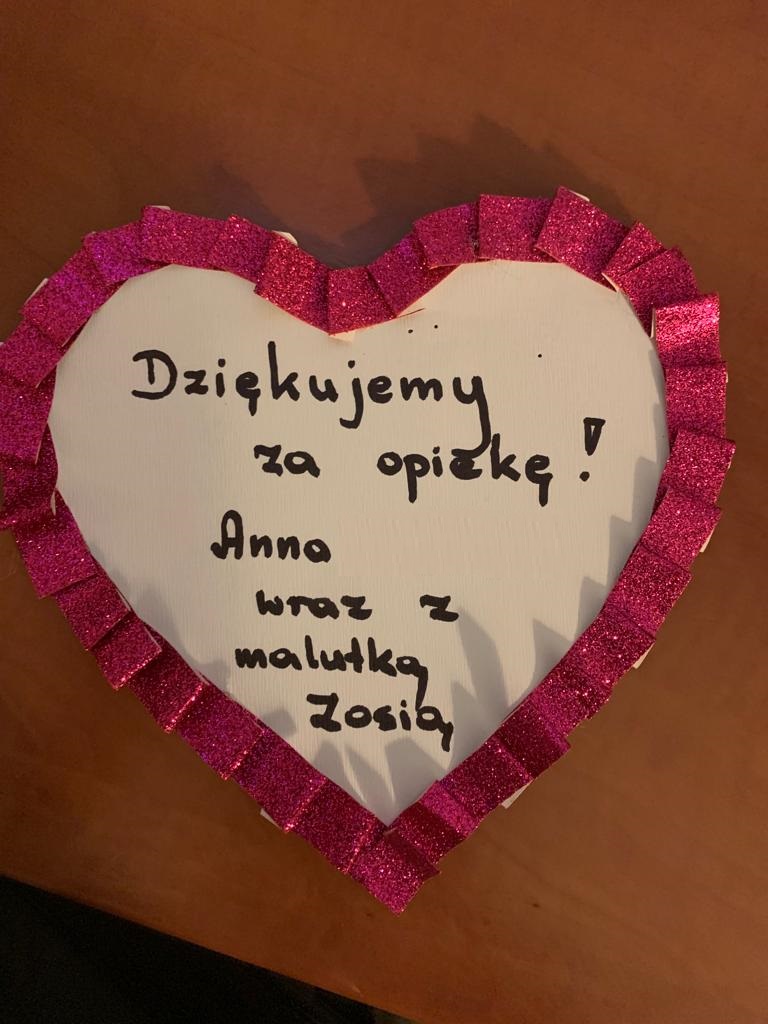 Dziękujemy
za opiekę!
Anna
wraz z
malutką
Zosią